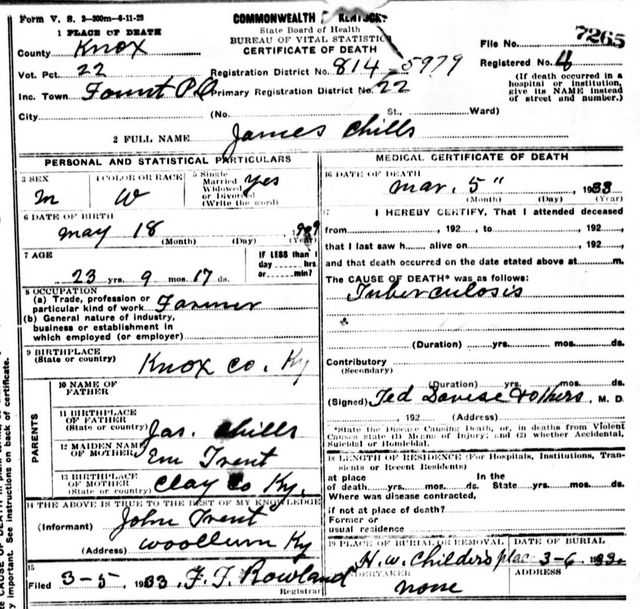 Form V. S. 2-300m-6-11-23
COMMONWEALTH KENTUCKY
State Board of Health
BUREAU OF VITAL STATISTICS
CERTIFICATE OF DEATH
File No. 7265
Registered No. 4
(If death occurred in a
hospital or institution,
give its NAME instead
of street and number.)
1 PLACE OF DEATH
County Knox
Vot. Pct. 22
Registration District No. 814-5979
Inc. Town Fount P.O
Primary Registration District No. 22
City (No. St., Ward)
2 FULL NAME James Chills
PERSONAL AND STATISTICAL PARTICULARS
3 SEX m
4 COLOR OR RACE W
5 Single
Married
Widowed
or Divorced
(Write the word)
yes
6 DATE OF BIRTH
may 18
(Month) (Day) (Year)
7 AGE
23 yrs. 9 mos. 17 ds.
IF LESS than 1
day hrs.
or min?
8 OCCUPATION
(a) Trade, profession or
particular kind of work Farmer
(b) General nature of industry,
business or establishment in
which employed (or employer)
9 BIRTHPLACE
(State or country) Knox co. Ky
PARENTS
10 NAME OF
FATHER
11 BIRTHPLACE
OF FATHER
(State or country)
Jas. Chills
12 MAIDEN NAME
OF MOTHER Em Trent
13 BIRTHPLACE
OF MOTHER
(State or country) Clay Co Ky.
14 THE ABOVE IS TRUE TO THE BEST OF MY KNOWLEDGE
(Informant) John Trent
(Address) woollum Ky
15
Filed 3-5, 1933, F. T. Rowland
Registrar
MEDICAL CERTIFICATE OF DEATH
16 DATE OF DEATH
Mar. 5", 1933
(Month) (Day) (Year)
17 I HEREBY CERTIFY, That I attended deceased
from, 192, to, 192,
that I last saw h alive on, 192,
and that death occurred on the date stated above at m.
The CAUSE OF DEATH* was as follows:
Tuberculosis
(Duration) yrs. mos. ds.
Contributory
(Secondary)
(Duration) yrs. mos. ds.
(Signed) Ted, M. D.
, 192 (Address)
*State the Disease Causing Death, or, in deaths from Violent
Causes state (1) Means of Injury; and (2) whether Accidental,
Suicidal or Homicidal.
18 LENGTH OF RESIDENCE (For Hospitals, Institutions, Tran-
sients or Recent Residents)
At place In the
of death yrs. mos. ds. State yrs. mos. ds.
Where was disease contracted,
if not at place of death?
Former or
usual residence
19 PLACE OF BURIAL OR REMOVAL
DATE OF BURIAL
H. W. Childers place 3-6, 1933
UNDERTAKER
ADDRESS
none